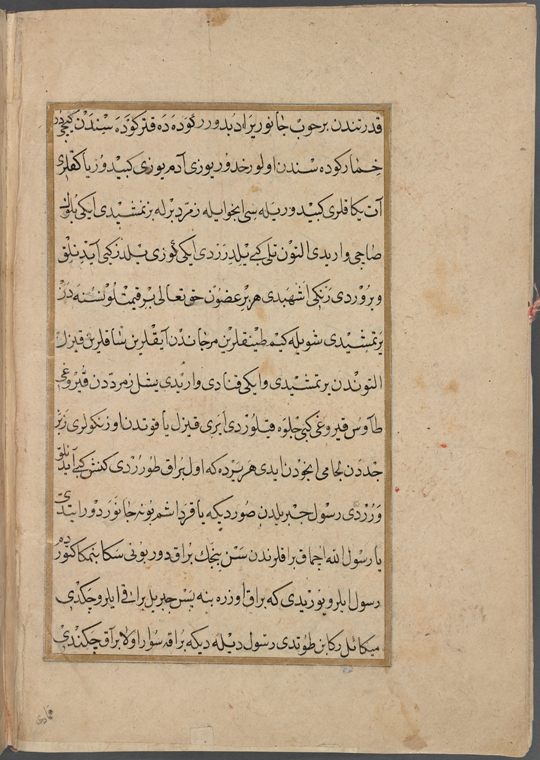 قدرتندن بر خوب جانور یرادیدور رکوده ده قتر کوده سندن کیچی دور
حمار کوده سندن اولور خدور یوزی آدم یوزی کبیدور ایاقلری
آت یکاقلری کبیدور یله سی انجو ایله زمرد برله بزنمشیدی ایکی یلونی
صاچی واریدی التون تلی کبی یلدررزدی ایکی کوزی یلدز کبی آیدنلق
ویروردی رنکی اشهبدی هر بر عضون حق تعالی بر قیمتلو نسنه دن
یرتمشیدی شویله کیم طرنقلرین مرجاندن آیقلرین شاقلرین قیزل
التوندن یرتمشیدی و ایکی قنادی واریدی یشل زمرددن قیروغی
طاوس قیروغی کبی جلوه قیلوردی ایری قیزل یاقوتدن اوزنکولری
دن لجامی انجودن ایدی هر یرده که اول براق طوررزدی کنش کبی آیدنلق
ویرردی رسول جبریلدن صوردیکه یا قرداشم بو نه جانوردور ایتدی
یا رسول الله اجماق براقلرندن سن بنجك براقدور بونی سکا بنمکا کتوردم
رسول ایلرو یوریدی که براق اوزره بنه پس جبریل براقی ایلرو چکدی
میکائل رکابن طوتدی رسول دیله دیکه براقه سوار اولا براق چکندی